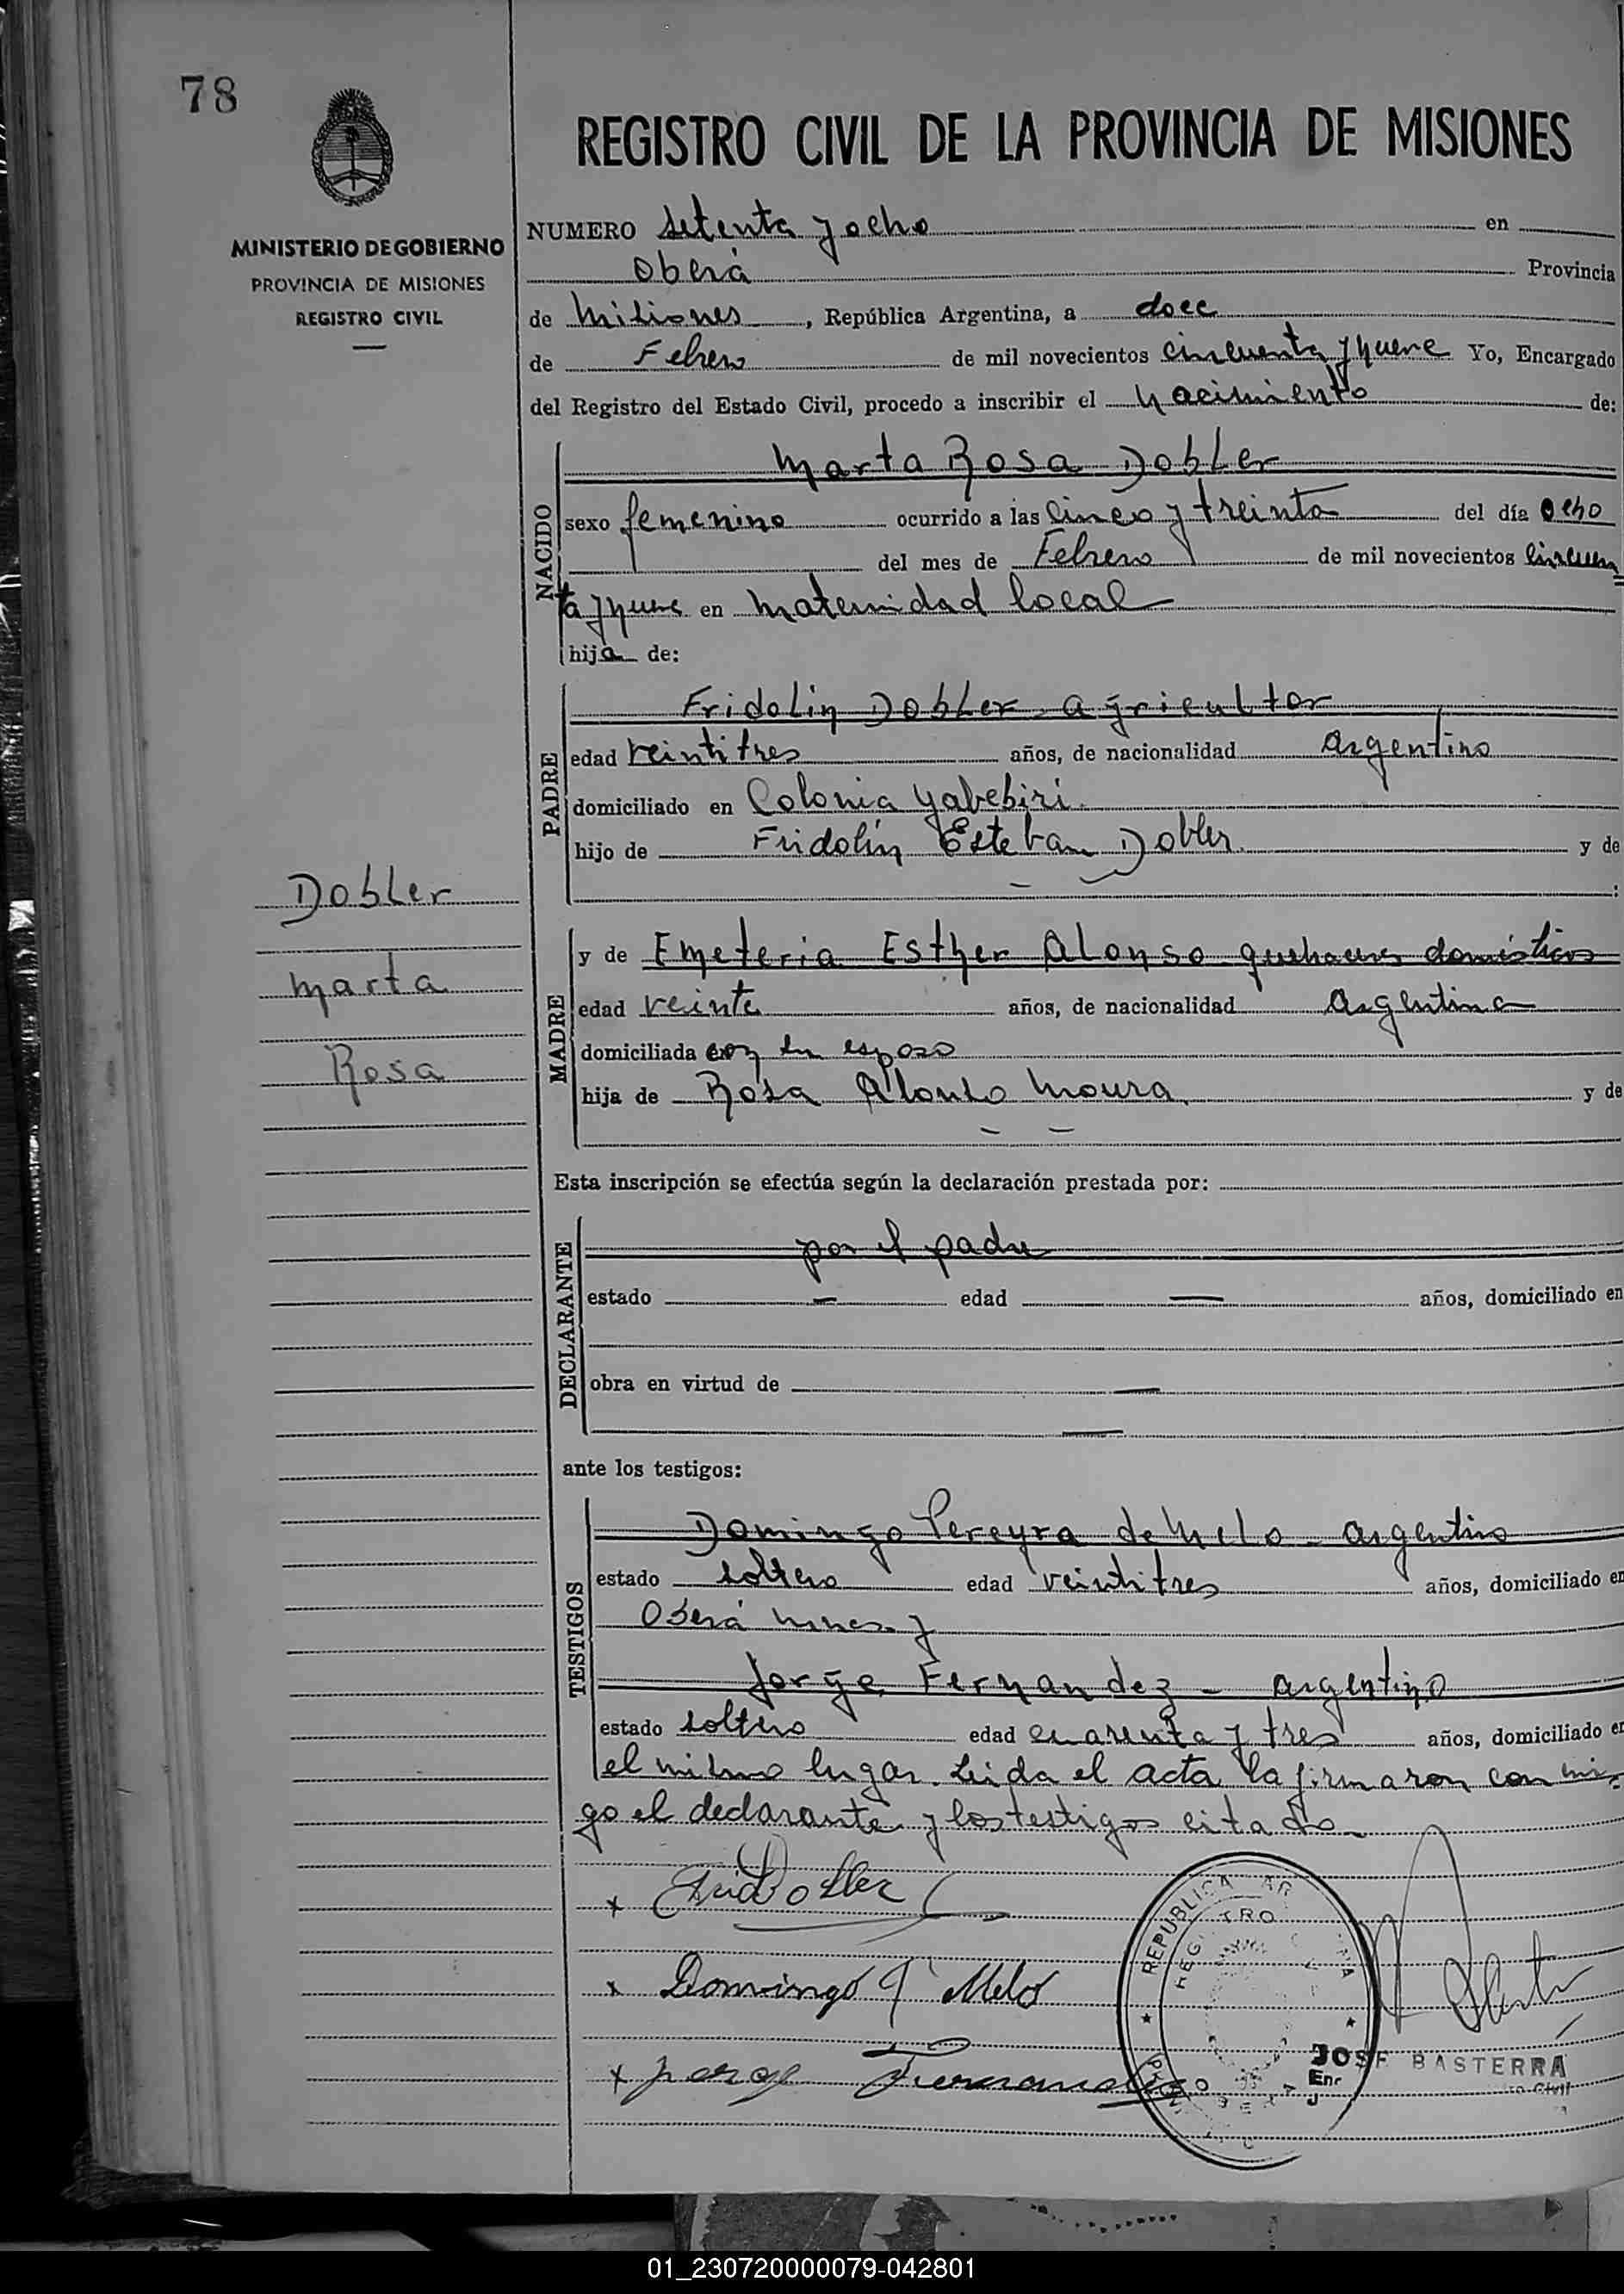 78
REGISTRO CIVIL DE LA PROVINCIA DE MISIONES
MINISTERIO DE GOBIERNO
PROVINCIA DE MISIONES
REGISTRO CIVIL
NUMERO setenta y ocho en
Oberá Provincia
de Misiones, República Argentina, a doce
de Febrero de mil novecientos cincuenta y nueve Yo, Encargado
del Registro del Estado Civil, procedo a inscribir el nacimiento de:
NACIDO
Marta Rosa Dobler
sexo femenino ocurrido a las cinco y treinta del día ocho
del mes de Febrero de mil novecientos cincuen
ta y nueve en maternidad local
hija de:
PADRE
Fridolin Dobler agricultor
edad veintitres años, de nacionalidad argentino
domiciliado en Colonia Yabebiri
hijo de Fridolín Esteban Dobler y de
Dobler
Marta
Rosa
MADRE
y de Emeteria Esther Alonso quehaceres domésticos
edad veinte años, de nacionalidad argentina
domiciliada con su esposo
hija de Rosa Alonso Moura y de
Esta inscripción se efectúa según la declaración prestada por:
DECLARANTE
por el padre
estado — edad — años, domiciliado en
obra en virtud de —
—
ante los testigos:
TESTIGOS
Domingo Pereyra de Melo - argentino
estado soltero edad veintitres años, domiciliado en
Oberá y
Jorge Fernandez - argentino
estado soltero edad cuarenta y tres años, domiciliado en
el mismo lugar. Leida el acta la firmaron con mi-
go el declarante y los testigos citados
x Dobler
x Domingo P Melo
x Jorge Fernandez
REPUBLICA AR
JOSE BASTERRA
01_230720000079-042801